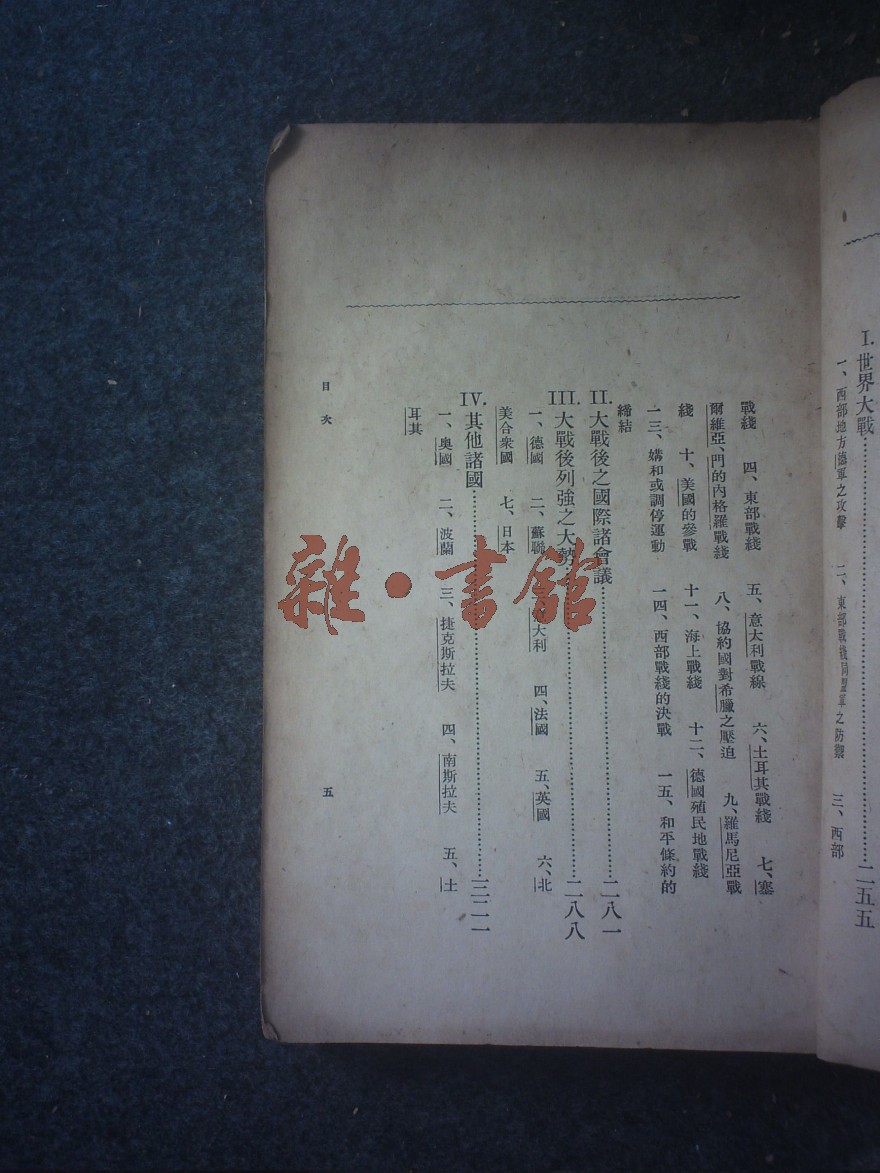 I. 世界大戰……二五五
一、西部地方德軍之攻擊 二、東部戰綫同盟軍之防禦 三、西部
戰綫 四、東部戰綫 五、意大利戰線 六、土耳其戰綫 七、塞
爾維亞、門的內格羅戰綫 八、協約國對希臘之壓迫 九、羅馬尼亞戰
綫 十、美國的參戰 十一、海上戰綫 十二、德國殖民地戰綫
一三、媾和或調停運動 一四、西部戰綫的決戰 一五、和平條約的
締結
II. 大戰後之國際諸會議……二八一
III. 大戰後列強之大勢……二八八
一、德國 二、蘇聯 大利 四、法國 五、英國 六、北
美合衆國 七、日本
IV. 其他諸國……三二一
一、奧國 二、波蘭 三、捷克斯拉夫 四、南斯拉夫 五、土
耳其
目次
五
雜·書館